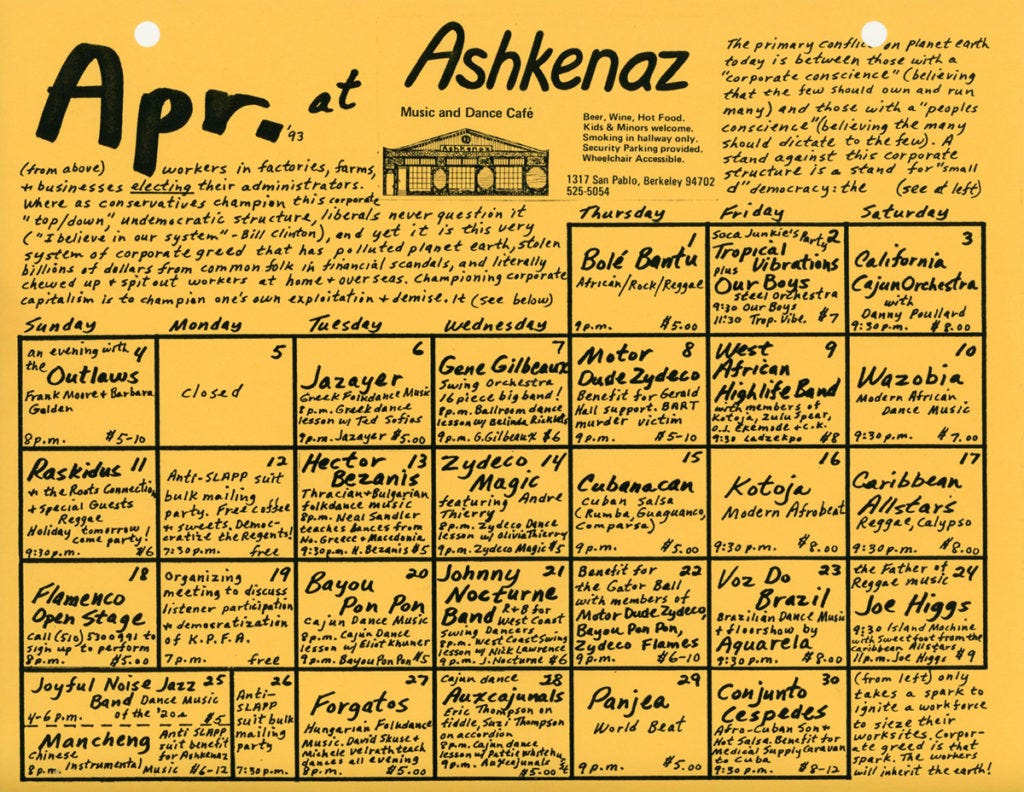 Apr. '93 at
Ashkenaz
Music and Dance Café
Ashkenaz
Beer, Wine, Hot Food.
Kids & Minors welcome.
Smoking in hallway only.
Security Parking provided.
Wheelchair Accessible.
1317 San Pablo, Berkeley 94702
525-5054
The primary conflict on planet earth
today is between those with a
"corporate conscience" (believing
that the few should own and run
many) and those with a "peoples
conscience" (believing the many
should dictate to the few). A
stand against this corporate
structure is a stand for "small
d" democracy: the (see at left)
(from above) workers in factories, farms,
+ businesses electing their administrators.
Where as conservatives champion this corporate
"top/down," undemocratic structure, liberals never question it
("I believe in our system" - Bill Clinton), and yet it is this very
system of corporate greed that has polluted planet earth, stolen
billions of dollars from common folk in financial scandals, and literally
chewed up + spit out workers at home + overseas. Championing corporate
capitalism is to champion one's own exploitation + demise. It (see below)
Thursday Friday Saturday
1
Bolé Bantu
African/Rock/Reggae
9p.m. $5.00
Soca Junkie's Party 2
Tropical
Vibrations
plus
Our Boys
steel orchestra
9:30 Our Boys
11:30 Trop. Vibe. $7
3
California
Cajun Orchestra
with
Danny Poullard
9:30p.m. $8.00
Sunday Monday Tuesday Wednesday
an evening with 4
the
Outlaws
Frank Moore + Barbara
Golden
8p.m. $5-10
5
closed
6
Jazayer
Greek Folkdance Music
8p.m. Greek dance
lesson w/ Ted Sofios
9p.m. Jazayer $5.00
7
Gene Gilbeaux
Swing Orchestra
16 piece big band!
8p.m. Ballroom dance
lesson w/ Belinda Ricklefs
9p.m. G. Gilbeaux $6
Motor 8
Dude Zydeco
Benefit for Gerald
Hall support. BART
murder victim
9p.m. $5-10
West 9
African
Highlife Band
with members of
Kotoja, Zulu Spear,
O.J. Ekemode + C.K.
9:30 Ladzekpo $8
10
Wazobia
Modern African
Dance Music
9:30p.m. $7.00
Raskidus 11
+ the Roots Connection
+ Special Guests
Reggae
Holiday tomorrow!
come party!
9:30p.m. $6
12
Anti-SLAPP suit
bulk mailing
party. Free coffee
+ sweets. Democ-
ratize the Regents!
7:30p.m. free
Hector 13
Bezanis
Thracian + Bulgarian
folkdance music
8p.m. Neal Sandler
teaches dances from
No. Greece + Macedonia
9:30p.m. H. Bezanis $5
Zydeco 14
Magic
featuring Andre
Thierry
8p.m. Zydeco Dance
lesson w/ Olivia Thierry
9p.m. Zydeco Magic $5
15
Cubanacan
cuban Salsa
(Rumba, Guaguanco,
Comparsa)
9p.m. $5.00
16
Kotoja
Modern Afrobeat
9:30p.m. $8.00
17
Caribbean
Allstars
Reggae, Calypso
9:30p.m. $8.00
18
Flamenco
Open Stage
call (510) 5300991 to
sign up to perform
8p.m. $5.00
Organizing 19
meeting to discuss
listener participation
+ democratization
of K.P.F.A.
7p.m. free
20
Bayou
Pon Pon
Cajun Dance Music
8p.m. Cajun Dance
lesson w/ Eliot Khuner
9p.m. Bayou Pon Pon $5
Johnny 21
Nocturne
Band R+B for
West Coast
Swing Dancers
8p.m. West Coast Swing
lesson w/ Nick Lawrence
9p.m. J. Nocturne $6
Benefit for 22
the Gator Ball
with members of
Motor Dude Zydeco,
Bayou Pon Pon,
Zydeco Flames
9p.m. $6-10
Voz Do 23
Brazil
Brazilian Dance Music
+ floorshow by
Aquarela
9:30p.m. $8.00
the Father of
Reggae music 24
Joe Higgs
9:30 Island Machine
with Sweetfoot from the
Caribbean Allstars
11p.m. Joe Higgs $9
Joyful Noise Jazz 25
Band Dance Music
of the '20s
4-6p.m. $5
Mancheng
Chinese
Instrumental
Music
Anti SLAPP
suit benefit
for Ashkenaz
8p.m. $6-12
26
Anti-
SLAPP
suit bulk
mailing
party
7:30p.m.
27
Forgatos
Hungarian Folkdance
Music. David Skuse +
Michele Velrath teach
dances all evening
8p.m. $5.00
Cajun dance 28
Auxcajunals
Eric Thompson on
fiddle, Suzi Thompson
on accordion
8p.m. Cajun dance
lesson w/ Pattie
9p.m. Auxcajunals $5.00
29
Panjea
World Beat
9p.m. $5.00
30
Conjunto
Cespedes
Afro-Cuban Son +
Hot Salsa. Benefit for
Medical Supply Caravan
to Cuba
9:30p.m. $8-12
(from left) only
takes a spark to
ignite a workforce
to sieze their
worksites. Corpor-
ate greed is that
spark. The workers
will inherit the earth!